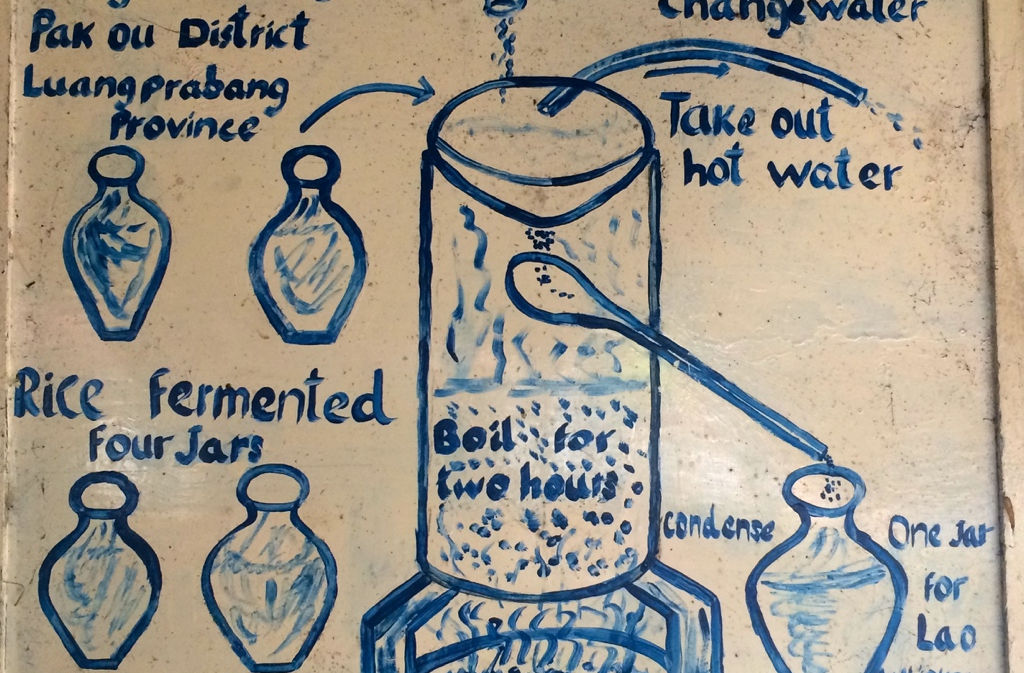 Pak ou District
Luangprabang
Province
Changewater
Take out
hot water
Rice fermented
four Jars
Boil for
two hours
condense
One Jar
for
Lao